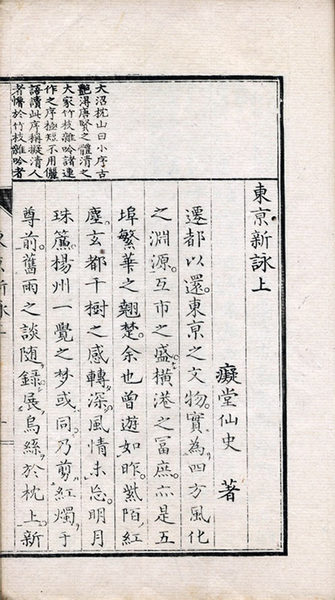 大沼枕山曰小序古
艷得唐賢之體清之
大家竹枝雜吟諸連
作之序極短不用儷
語讀此序稱擬清人
者慚於竹枝雜吟者
東京新詠上
癡堂仙史 著
遷都以還東京之文物實為四方風化
之淵源互市之盛橫港之冨庶亦是五
埠繁華之翹楚余也曾遊如昨紫陌紅
塵玄都千樹之感轉深風情未忘明月
珠簾楊州一覺之梦或同乃剪紅燭于
尊前舊雨之談隨錄展烏絲於枕上新